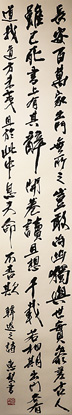 長安百萬家出門無所之豈敢尚幽獨與世實參差古人
雖已死書上有其辭開卷讀且想千載若相期出門各有
道我道方未夷且於此中息天命不吾欺 韓退之詩